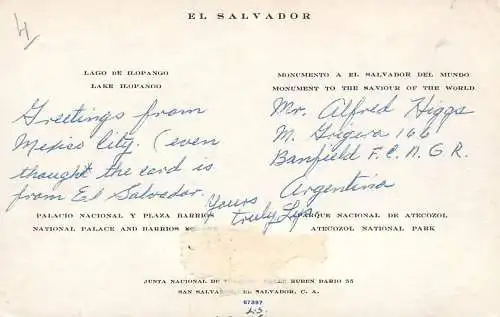 4
EL SALVADOR
LAGO DE ILOPANGO
LAKE ILOPANGO
MONUMENTO A EL SALVADOR DEL MUNDO
MONUMENT TO THE SAVIOUR OF THE WORLD
Greetings from
Mexico City. (even
thought the card is
from El Salvador.
Yours
truly
Mr. Alfred Higgs
M. Grigera 166
Banfield F.C.N.G.R.
Argentina
PALACIO NACIONAL Y PLAZA BARRIOS
NATIONAL PALACE AND BARRIOS
PARQUE NACIONAL DE ATECOZOL
ATECOZOL NATIONAL PARK
JUNTA NACIONAL DE RUBEN DARIO 55
SAN SALVADOR, EL SALVADOR, C. A.
67397